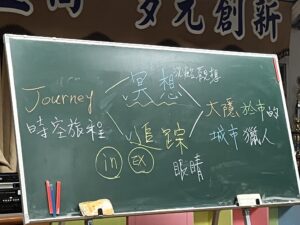 多元創新
Journey
時空旅程
冥想
追踪
in EX
眼睛
大隱於市的
城市獵人